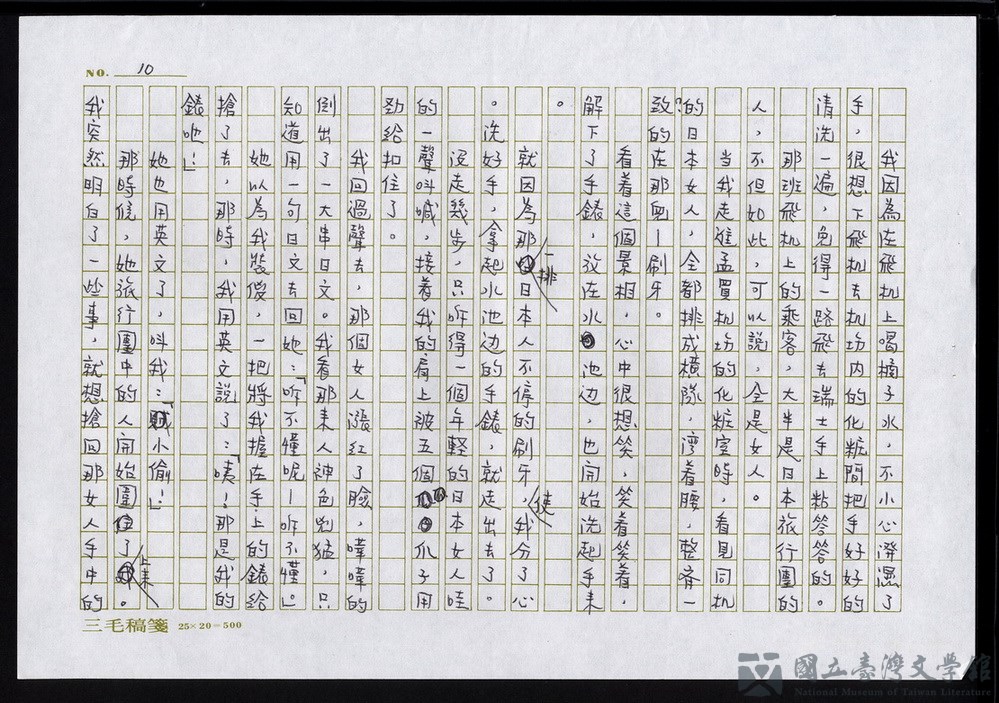 NO. 10
我因為在飛机上喝橘子水，不小心潑濕了
手，很想下飛机去机坊內的化粧間把手好好的
清洗一遍，免得一路飛去瑞士手上粘答答的。
那班飛机上的乘客，大半是日本旅行團的
人，不但如此，可以說，全是女人。
當我走進孟買机坊的化粧室時，看見同机
的日本女人，全都排成橫隊，灣着腰，整齊一
致的在那兒—刷牙。
看着這個景相，心中很想笑，笑着笑着，
解下了手錶，放在水池边，也開始洗起手來
。
就因為那一排日本人不停的刷牙，使我分了心
。洗好手，拿起水池边的手錶，就走出去了。
沒走幾步，只听得一個年輕的日本女人哇
的一聲叫喊，接着我的肩上被五個爪子用
勁給扣住了。
我回過聲去，那個女人漲紅了臉，嘩嘩的
倒出了一大串日文。我看那來人神色兇猛，只
知道用一句日文去回她：「听不懂呢—听不懂。」
她以為我裝傻，一把將我握在手上的錶給
搶了去，那時，我用英文說了：「咦！那是我的
錶吔！」
她也用英文了，叫我：「小偷！」
那時候，她旅行團中的人開始圍了上來。
我突然明白了一些事，就想搶回那女人手中的
三毛稿箋 25×20=500
國立臺灣文學館
National Museum of Taiwan Literature